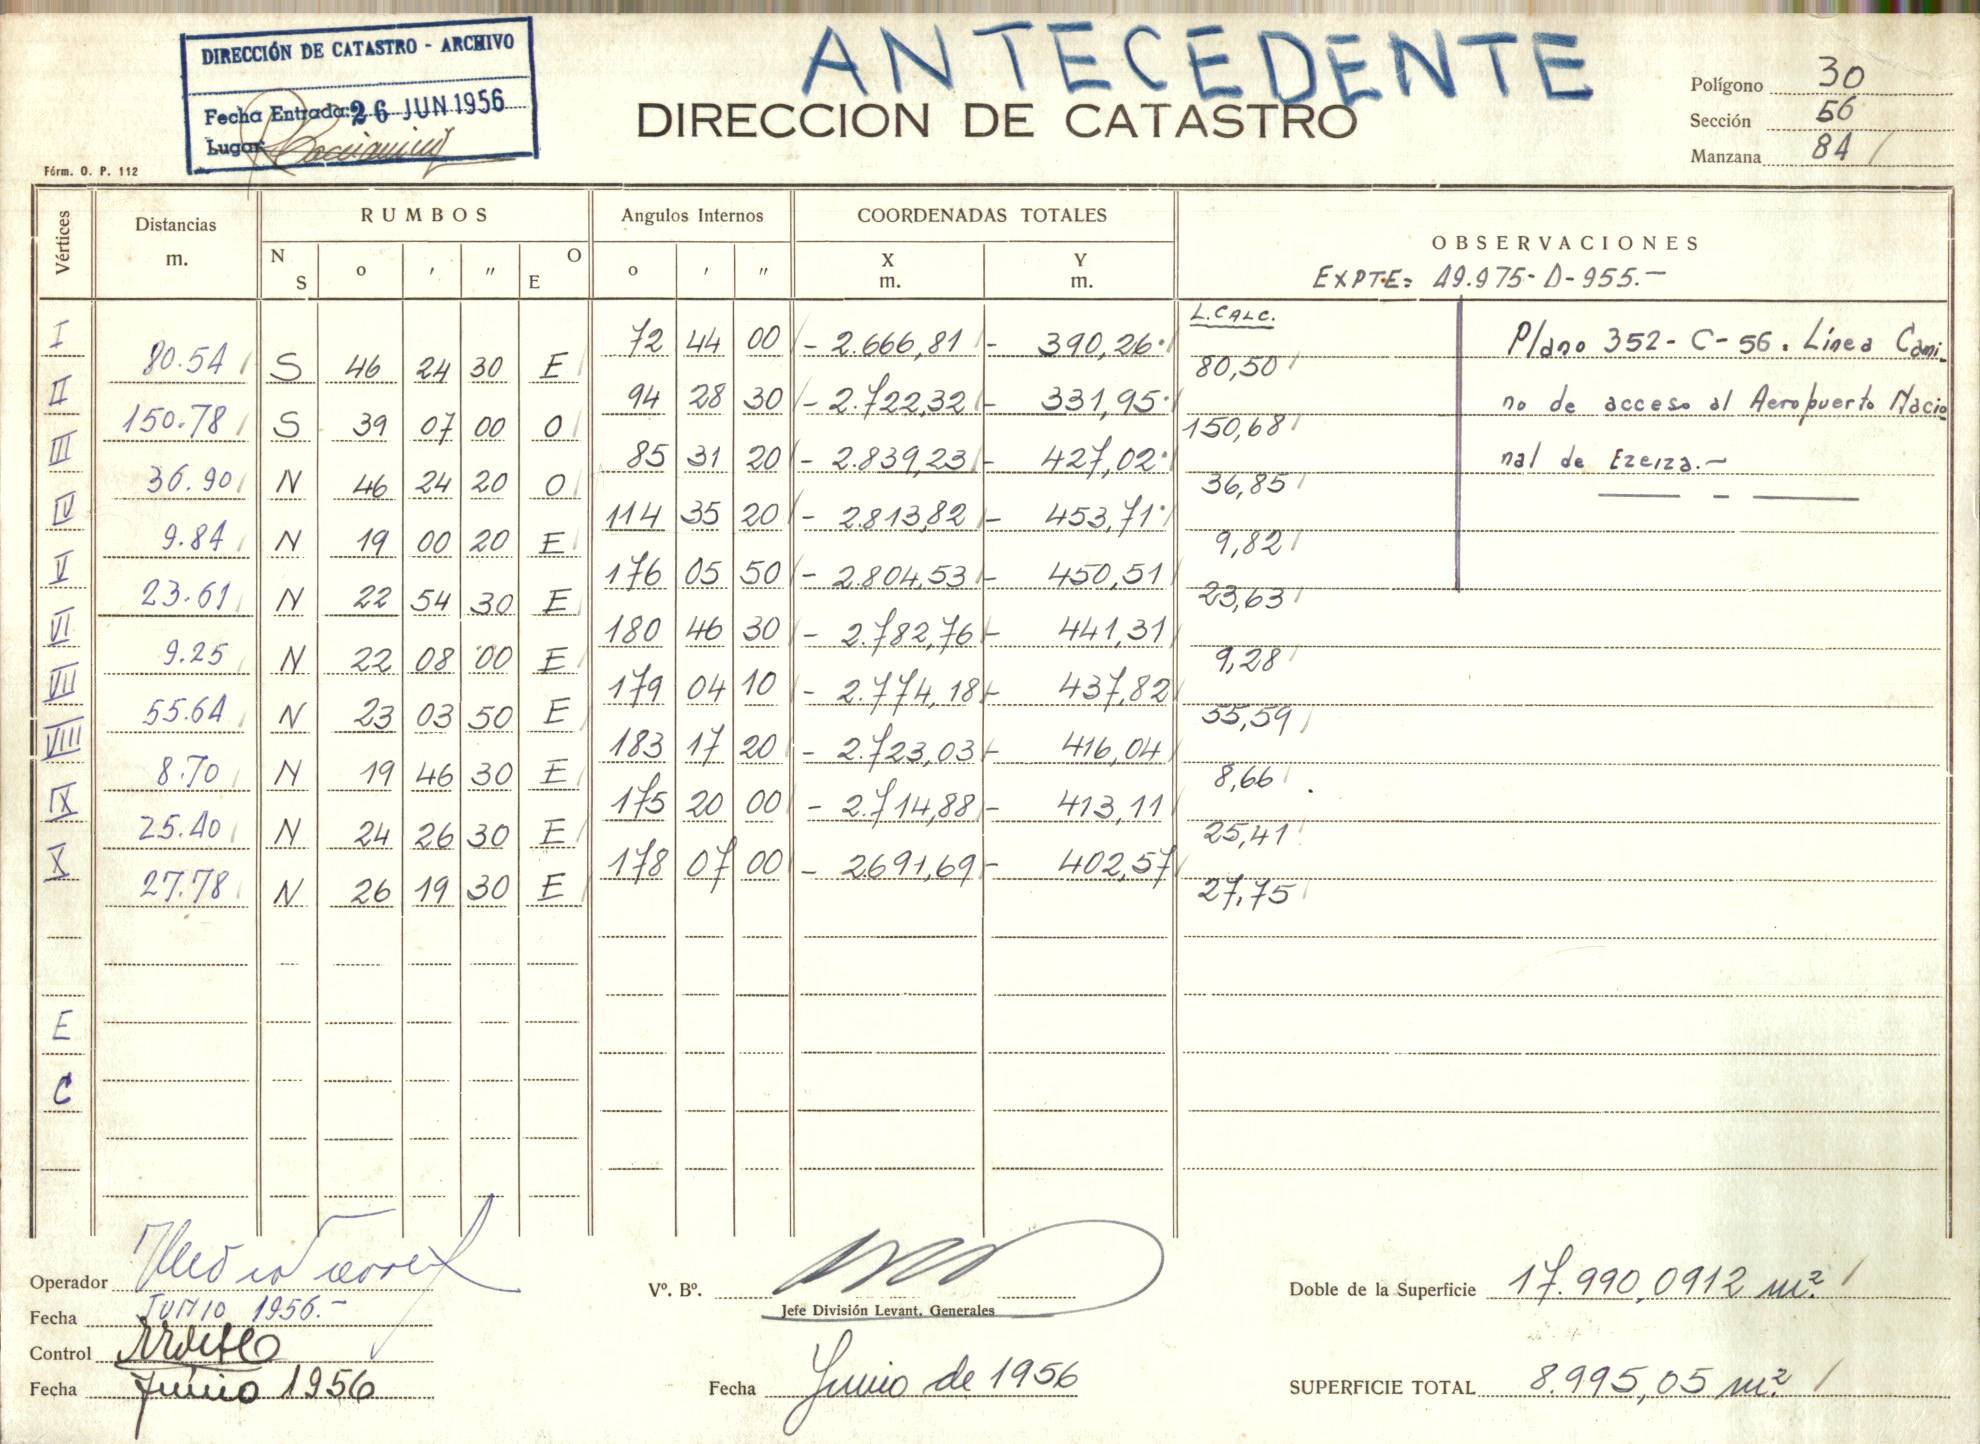 ANTECEDENTE
DIRECCIÓN DE CATASTRO - ARCHIVO
Fecha Entrada: 26 JUN 1956
Lugar
DIRECCION DE CATASTRO
Polígono 30
Sección 56
Manzana 84
Fórm. O. P. 112
Vértices
Distancias m.
RUMBOS
N S
o
,
,,
O E
Angulos Internos
o
,
,,
COORDENADAS TOTALES
X m.
Y m.
OBSERVACIONES
EXPTE= 49.975-D-955.-
L.CALC.
I 72 44 00 - 2.666,81 - 390,26
80.54 S 46 24 30 E 80,50
II 94 28 30 - 2.722,32 - 331,95
150.78 S 39 07 00 O 150,68
III 85 31 20 - 2.839,23 - 427,02
36.90 N 46 24 20 O 36,85
IV 114 35 20 - 2.813,82 - 453,71
9.84 N 19 00 20 E 9,82
V 176 05 50 - 2.804,53 - 450,51
23.61 N 22 54 30 E 23,63
VI 180 46 30 - 2.782,76 - 441,31
9.25 N 22 08 00 E 9,28
VII 179 04 10 - 2.774,18 - 437,82
55.64 N 23 03 50 E 55,59
VIII 183 17 20 - 2.723,03 - 416,04
8.70 N 19 46 30 E 8,66
IX 175 20 00 - 2.714,88 - 413,11
25.40 N 24 26 30 E 25,41
X 178 07 00 - 2691,69 - 402,57
27.78 N 26 19 30 E 27,75
Plano 352-C-56. Línea Cami-
no de acceso al Aeropuerto Nacio
nal de Ezeiza.-
E
C
Operador
Fecha JUNIO 1956.-
Control
Fecha Junio 1956
Vº. Bº.
Jefe División Levant. Generales
Fecha Junio de 1956
Doble de la Superficie 17.990,0912 m²
SUPERFICIE TOTAL 8.995,05 m²